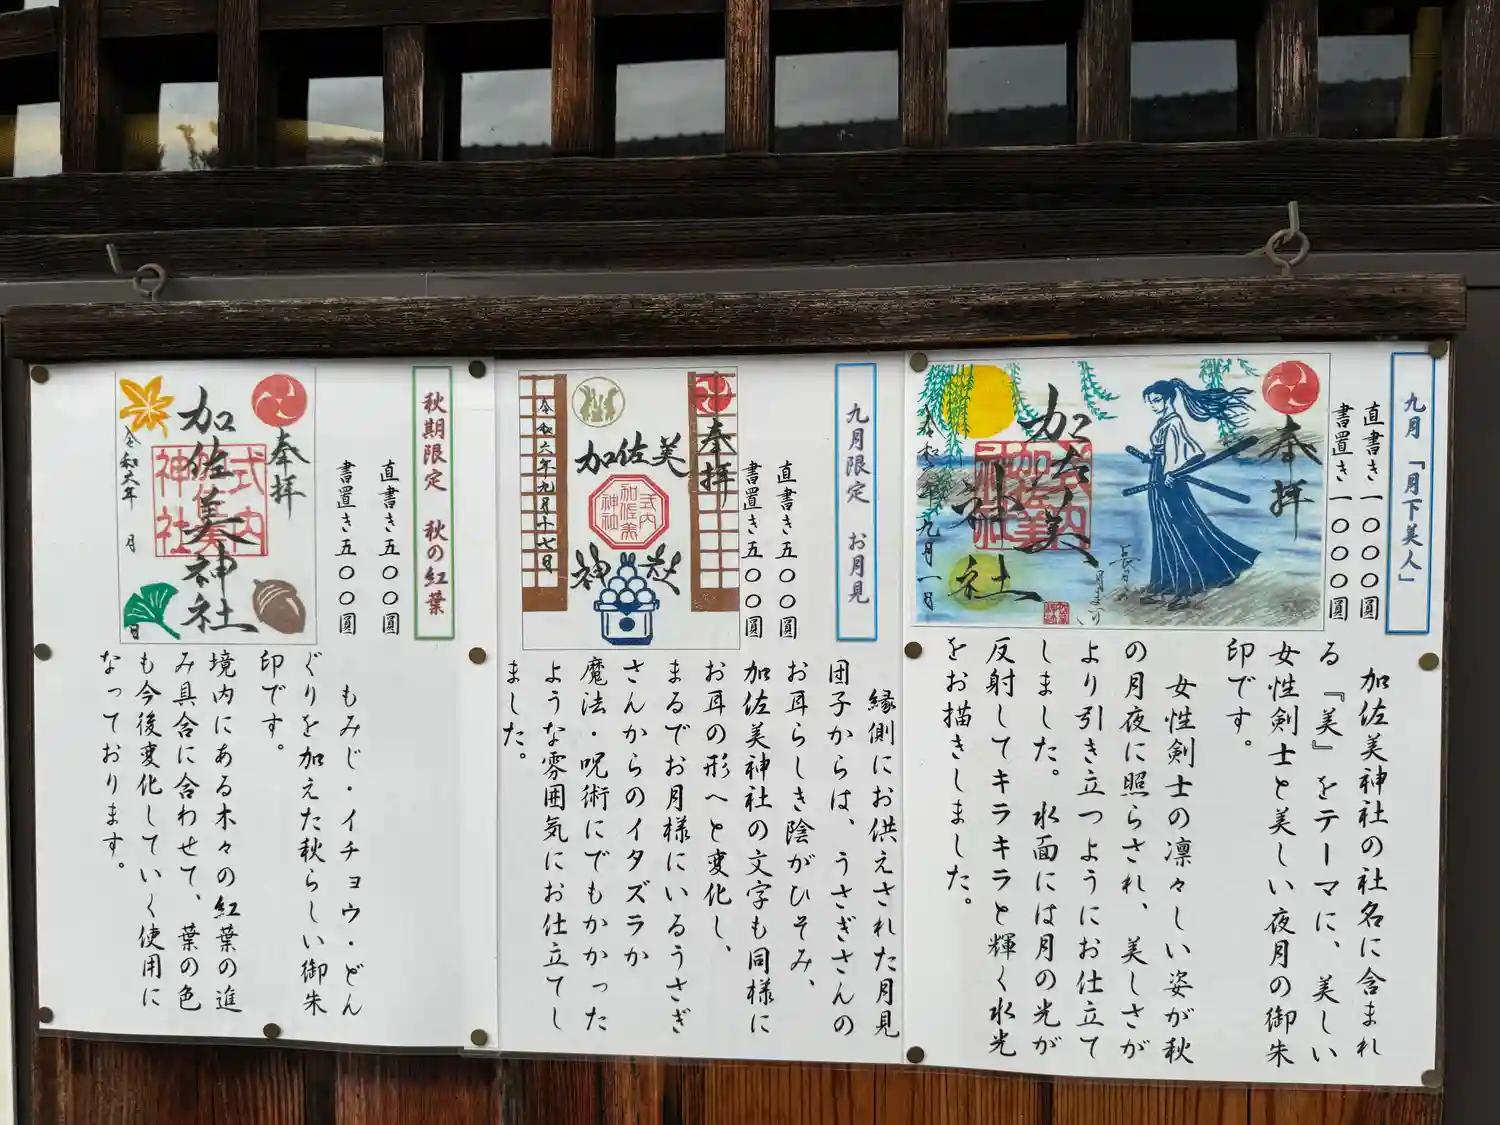 九月「月下美人」
直書き一〇〇〇圓
書置き一〇〇〇圓
奉拝
加佐美
神社
令和六年九月一日
加佐美神社の社名に含まれ
る『美』をテーマに、美しい
女性剣士と美しい夜月の御朱
印です。
女性剣士の凛々しい姿が秋
の月夜に照らされ、美しさが
より引き立つようにお仕立て
しました。水面には月の光が
反射してキラキラと輝く水光
をお描きしました。
九月限定 お月見
直書き五〇〇圓
書置き五〇〇圓
奉拝
加佐美
神社
式内
加佐美
神社
令和六年九月十七日
縁側にお供えされた月見
団子からは、うさぎさんの
お耳らしき陰がひそみ、
加佐美神社の文字も同様に
お耳の形へと変化し、
まるでお月様にいるうさぎ
さんからのイタズラか
魔法・呪術にでもかかった
ような雰囲気にお仕立てし
ました。
秋期限定 秋の紅葉
直書き五〇〇圓
書置き五〇〇圓
奉拝
加佐美神社
式内
神社
令和六年 月 日
もみじ・イチョウ・どん
ぐりを加えた秋らしい御朱
印です。
境内にある木々の紅葉の進
み具合に合わせて、葉の色
も今後変化していく使用に
なっております。